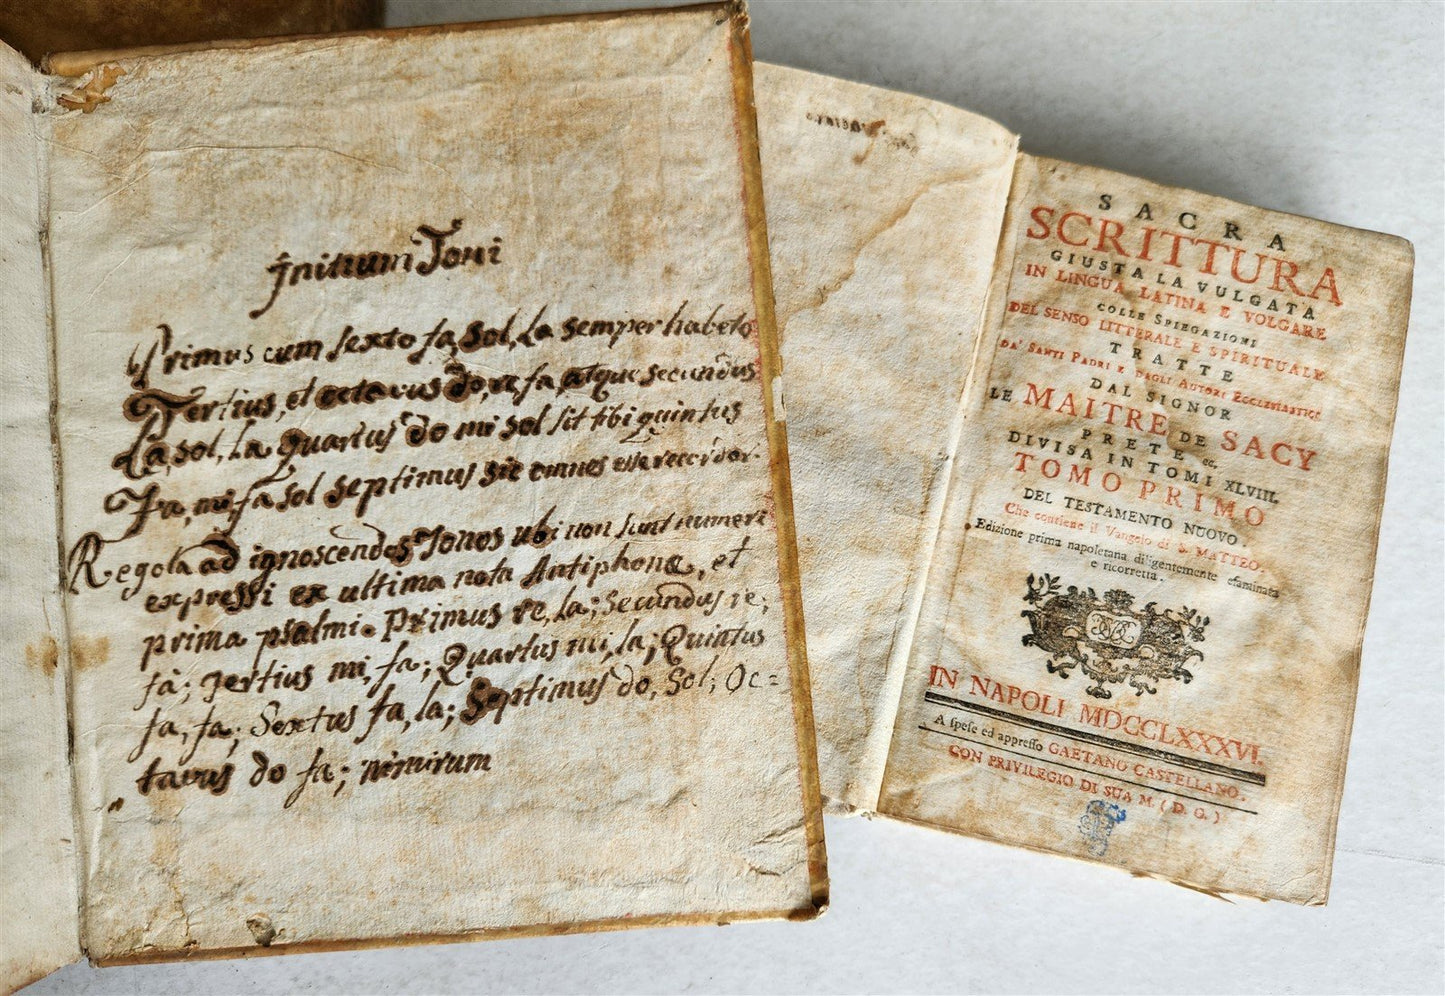 Initium Toni
Primus cum sexto fa, sol, la semper habeto
Tertius, et octavus do, re fa, atque secundus
La, sol, la quartus do mi sol sit tibi quintus
Fa, mi, fa sol septimus sic omnes esse recordor.
Regola ad ignoscendos Tonos ubi non sunt numeri
expressi ex ultima nota Antiphonæ, et
prima psalmi. Primus re, la; Secundus re;
fà; Tertius mi, fa; Quartus mi, la; Quintus
fa, fa; Sextus fa, la; Septimus do, Sol; Oc=
tavus do fa; nimirum
SACRA
SCRITTURA
GIUSTA LA VULGATA
IN LINGUA LATINA E VOLGARE
COLLE SPIEGAZIONI
DEL SENSO LITTERALE E SPIRITUALE
TRATTE
DA' SANTI PADRI E DAGLI AUTORI ECCLESIASTICI
DAL SIGNOR
LE MAITRE DE SACY
PRETE ec.
DIVISA IN TOMI XLVIII.
TOMO PRIMO
DEL TESTAMENTO NUOVO.
Che contiene il Vangelo di S. MATTEO.
Edizione prima napoletana diligentemente esaminata
e ricorretta.
IN NAPOLI MDCCLXXXVI.
A spese ed appresso GAETANO CASTELLANO.
CON PRIVILEGIO DI SUA M. (D. G.)